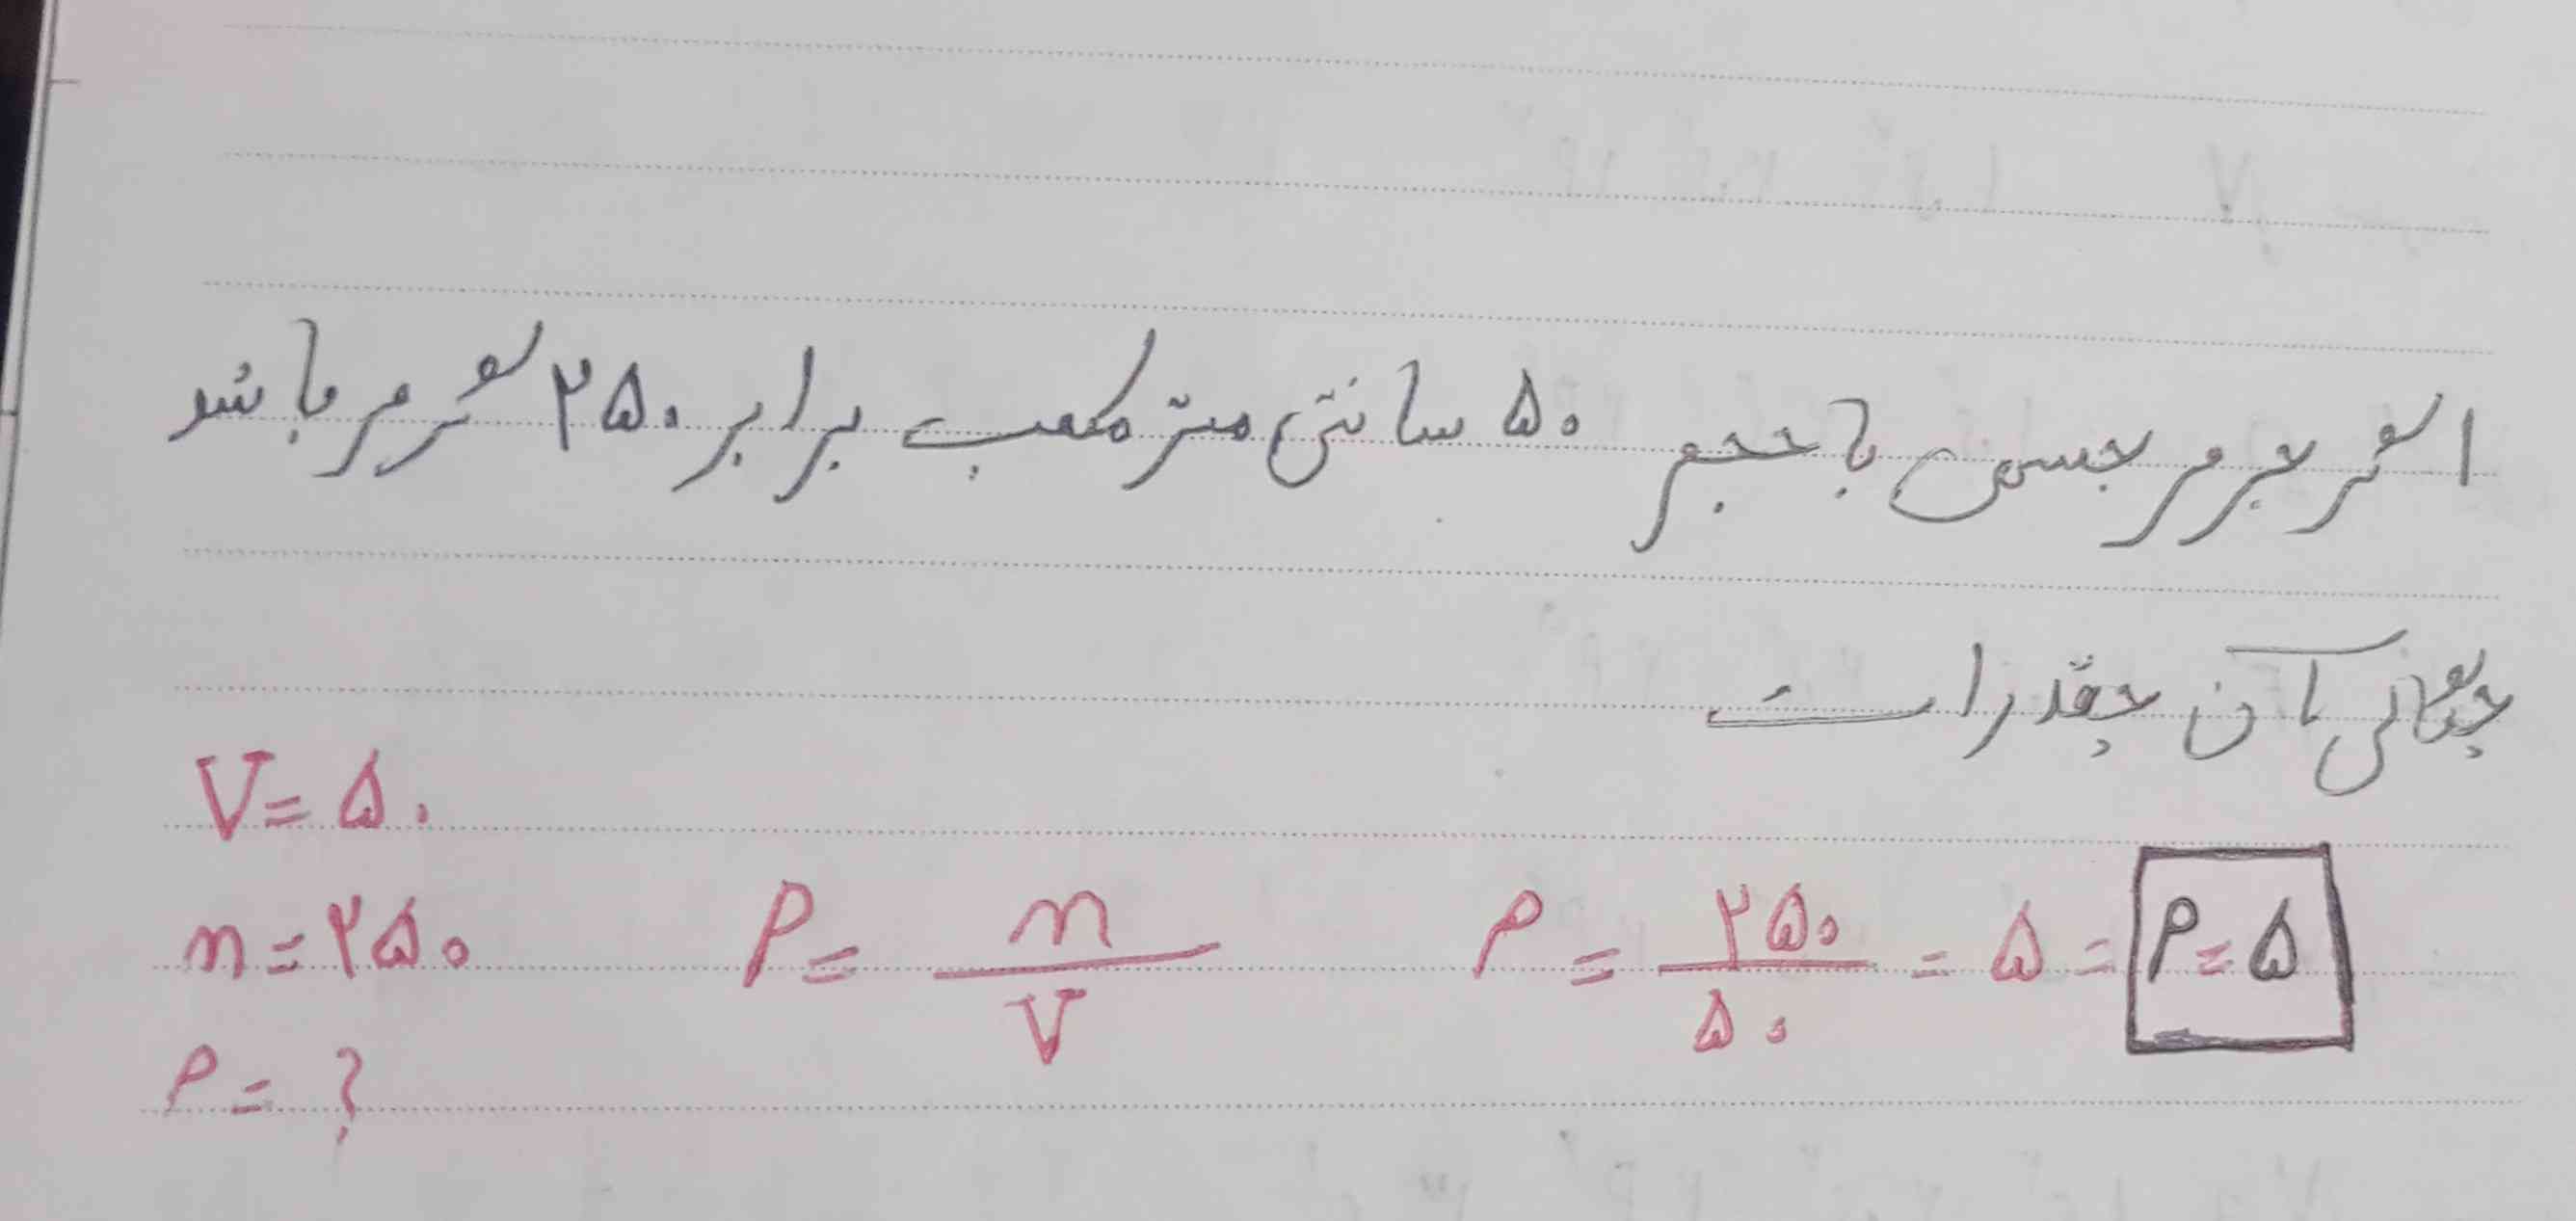 اگر جرم جسمی با حجم ۵۰ سانتی متر مکعب برابر ۲۵۰ گرم باشد
چگالی آن چقدر است
V = ۵۰
m = ۲۵۰ P = m/V P = ۲۵۰/۵۰ = ۵ = P = ۵
P = ?